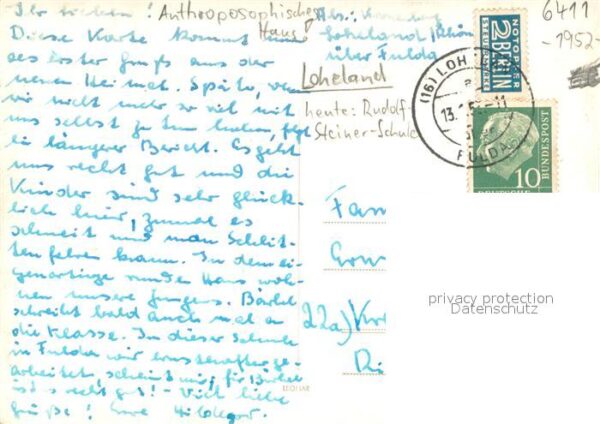 Ihr Lieben! Anthroposophisches Haus
Abs.:
Loheland / Rhön
über Fulda
Loheland
heute: Rudolf
Steiner-Schule
6411
-1952-
NOTOPFER
2 BERLIN
STEUERMARKE
(16) LOH
13.
FULDA
10
DEUTSCHE
BUNDESPOST
Diese Karte kommt
als erster Gruß aus der
neuen Heimat. Später, wenn
wir nicht mehr so viel mit
uns selbst zu tun haben, folgt
ein längerer Bericht. Es geht
uns recht gut und die
Kinder sind sehr glück-
lich hier, zumal es
schneit und man Schlit-
ten fahren kann. In dem ei-
genartigen runden Haus woh-
nen unsere Jungens. Bärbel
schreibt bald auch mal an
die Klasse. In dieser Schule
in Fulda wir ernsthafter ge-
arbeitet, scheint mir, für Bärbel
ist's recht gut! - Viel liebe
Grüße! Eure Hildegar.
Fam
22a)
privacy protection
Datenschutz